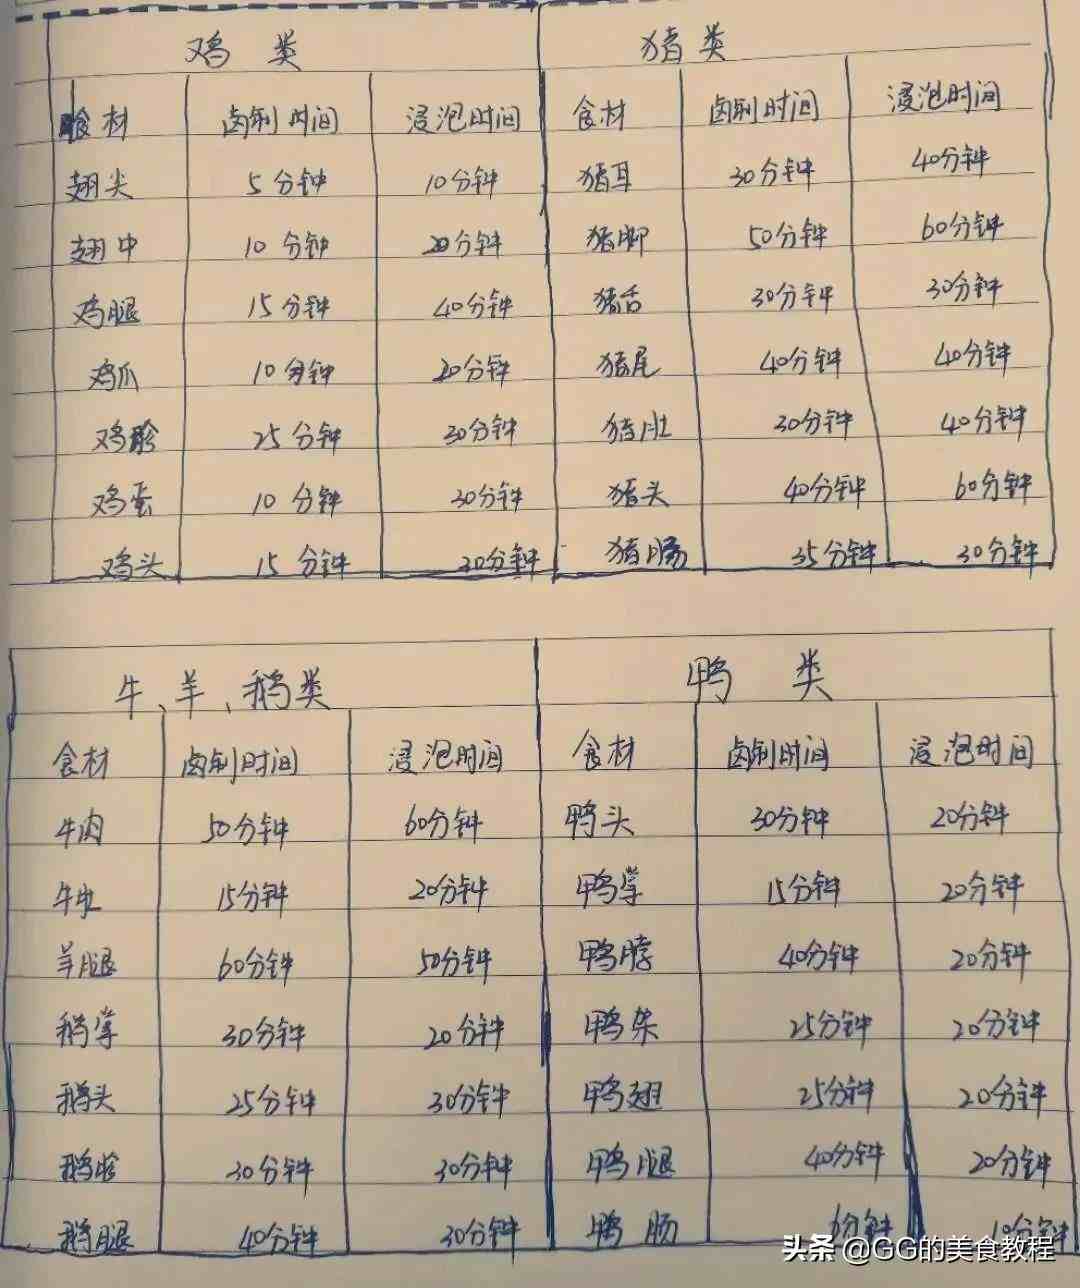 鸡类 猪类
食材 卤制时间 浸泡时间 食材 卤制时间 浸泡时间
翅尖 5分钟 10分钟 猪耳 30分钟 40分钟
翅中 10分钟 20分钟 猪脚 50分钟 60分钟
鸡腿 15分钟 40分钟 猪舌 30分钟 30分钟
鸡爪 10分钟 20分钟 猪尾 40分钟 40分钟
鸡胗 25分钟 30分钟 猪肚 30分钟 40分钟
鸡蛋 10分钟 30分钟 猪头 40分钟 60分钟
鸡头 15分钟 20分钟 猪肠 35分钟 30分钟
牛、羊、鹅类 鸭类
食材 卤制时间 浸泡时间 食材 卤制时间 浸泡时间
牛肉 50分钟 60分钟 鸭头 30分钟 20分钟
15分钟 20分钟 鸭掌 15分钟 20分钟
羊腿 60分钟 50分钟 鸭脖 40分钟 20分钟
鹅掌 30分钟 20分钟 鸭架 25分钟 20分钟
鹅头 25分钟 30分钟 鸭翅 25分钟 20分钟
鹅胗 30分钟 30分钟 鸭腿 40分钟 20分钟
鹅腿 40分钟 30分钟 鸭肠 分钟 10分钟
头条 @GG的美食教程